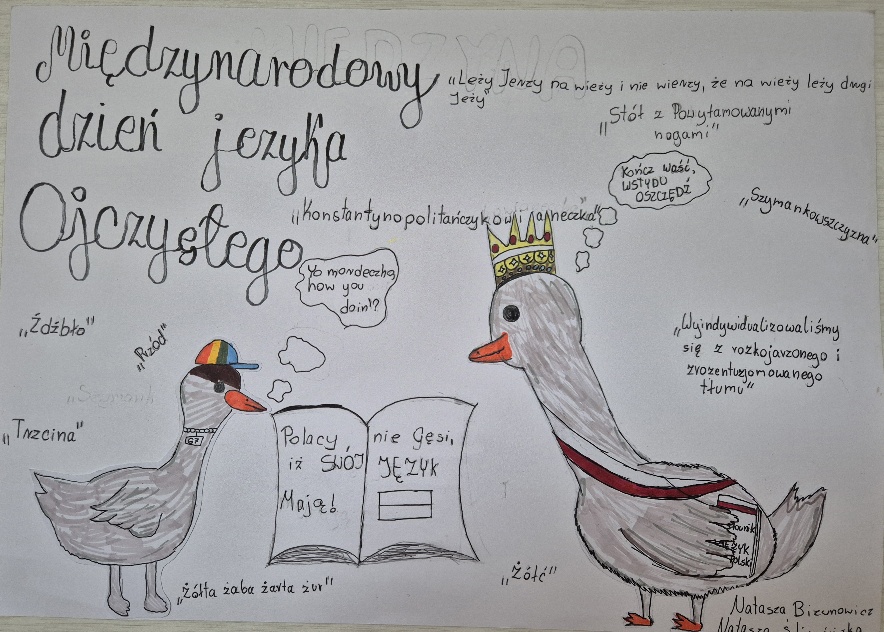 Międzynarodowy
dzień języka
Ojczystego
„Leży Jerzy na wieży i nie wierzy, że na wieży leży drugi
Jeży"
„Stół z Powyłamowanymi
nogami"
Kończ waść,
WSTYDU
OSZCZĘDŹ
„Konstantynopolitańczykowianeczka"
„Szymankowszczyzna"
Yo mordeczko
how you
doin'?
„Źdźbło"
„Rzód"
„Wyindywidualizowaliśmy
się z rozkojarzonego i
zrozentuzjomowanego
tłumu"
„Trzcina"
Polacy nie Gęsi,
iż SWÓJ JĘZYK
Mają!
Słownik
JĘZYK
Polski
„Żółć"
„Żółta żaba żarła żur"
Natasza Bizunowicz
Natasza